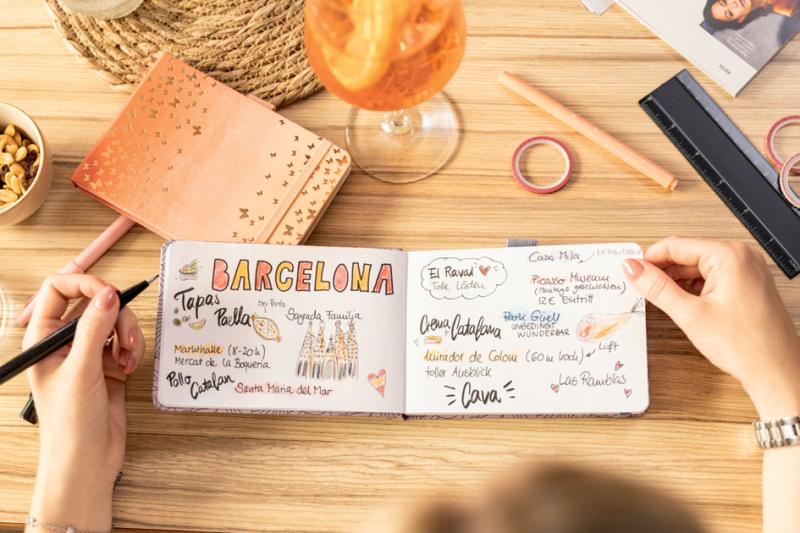 BARCELONA
Tapas
Paella
bei Paola
Sagrada Familia
Markthalle (8-20h)
Mercat de la Boqueria
Pollo
Catalan
Santa Maria del Mar
El Raval
Tolle Läden
Casa Mila
Picasso Museum
(Montags geschlossen)
12€ Eintritt
Crema Catalana
Park Güell
UNBEDINGT
WUNDERBAR
Mirador de Colom (60m hoch)
Lift
toller Ausblick
Cava
Las Ramblas